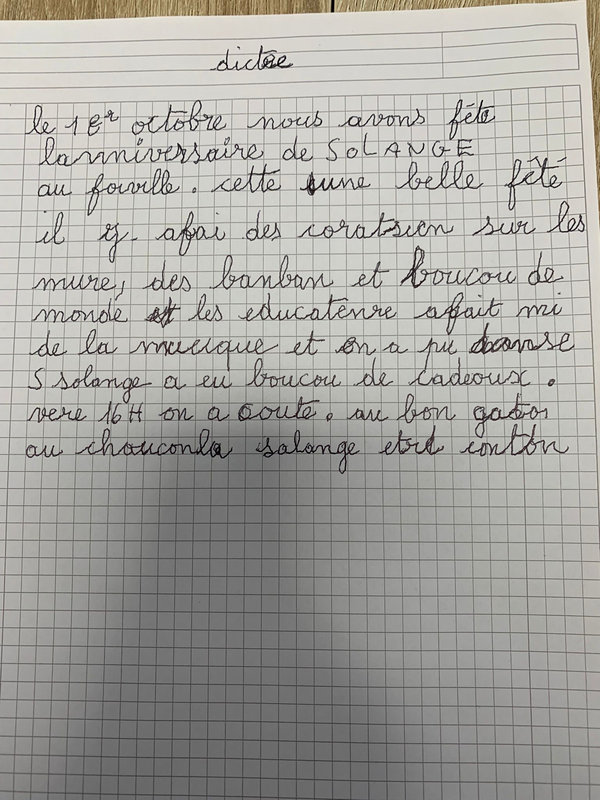 dictée
le 1er octobre nous avons fété
lanniversaire de SOLANGE
au fouille. cette une belle fété
il y. afai des coratsion sur les
mure, des banban et boucou de
mondé et les educatenre afait mi
de la mucique et on a pu danse
S solange a eu boucou de cadeoux.
vere 16H on a coute. au bon gatoi
au chouconla solange etrt contôn